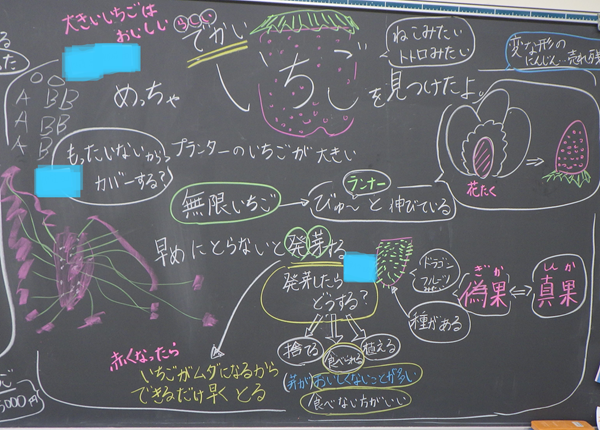 大きいいちごは
おいしい
らしい
でかい
いちご
を見つけたよ。
ねこみたい
トトロみたい
変な形の
にんじん…売れ残
めっちゃ
A BB
A BB
A BB
もったいないから
カバーする?
プランターのいちごが大きい
花たく
無限いちご
ランナー
びゅ〜と伸びている
早めにとらないと発芽する
発芽したら
どうする?
ドラゴン
フルーツみたい
種がある
ぎか
偽果
しんか
真果
捨てる
食べられる
植える
芽が
おいしくないことが多い
食べない方がいい
赤くなったら
いちごがムダになるから
できるだけ早くとる
000円